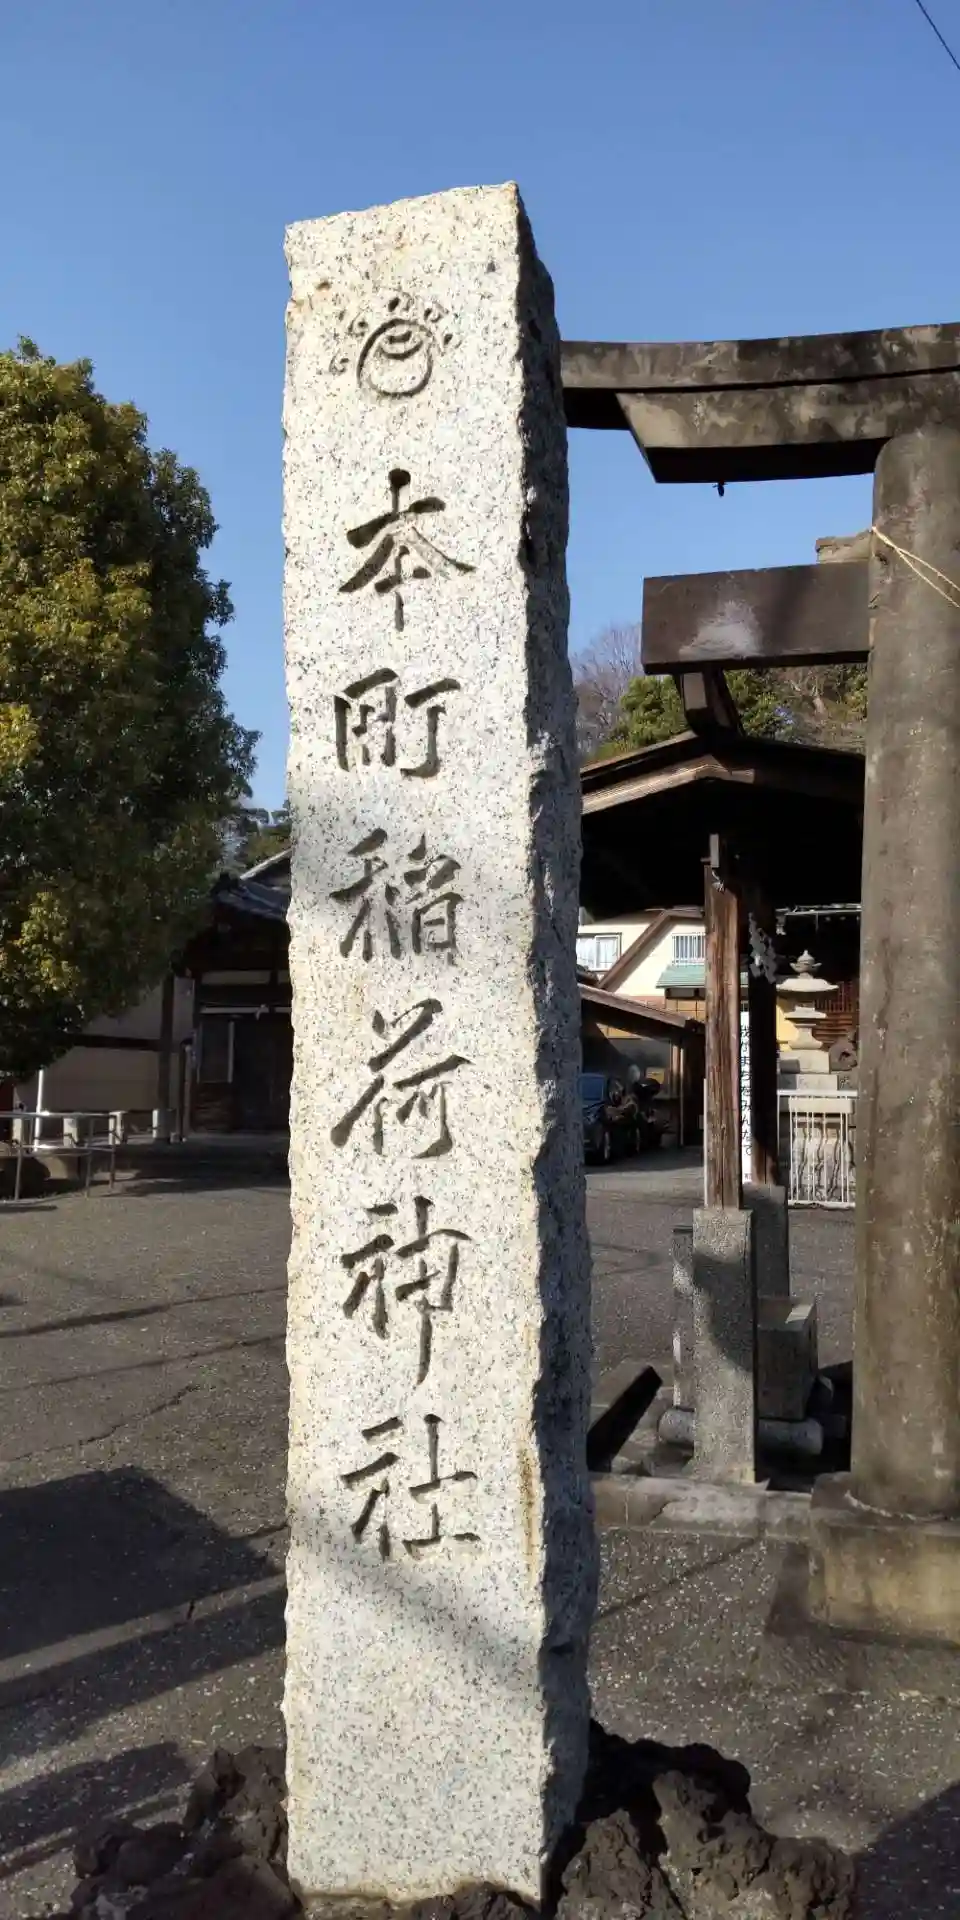 本町稲荷神社